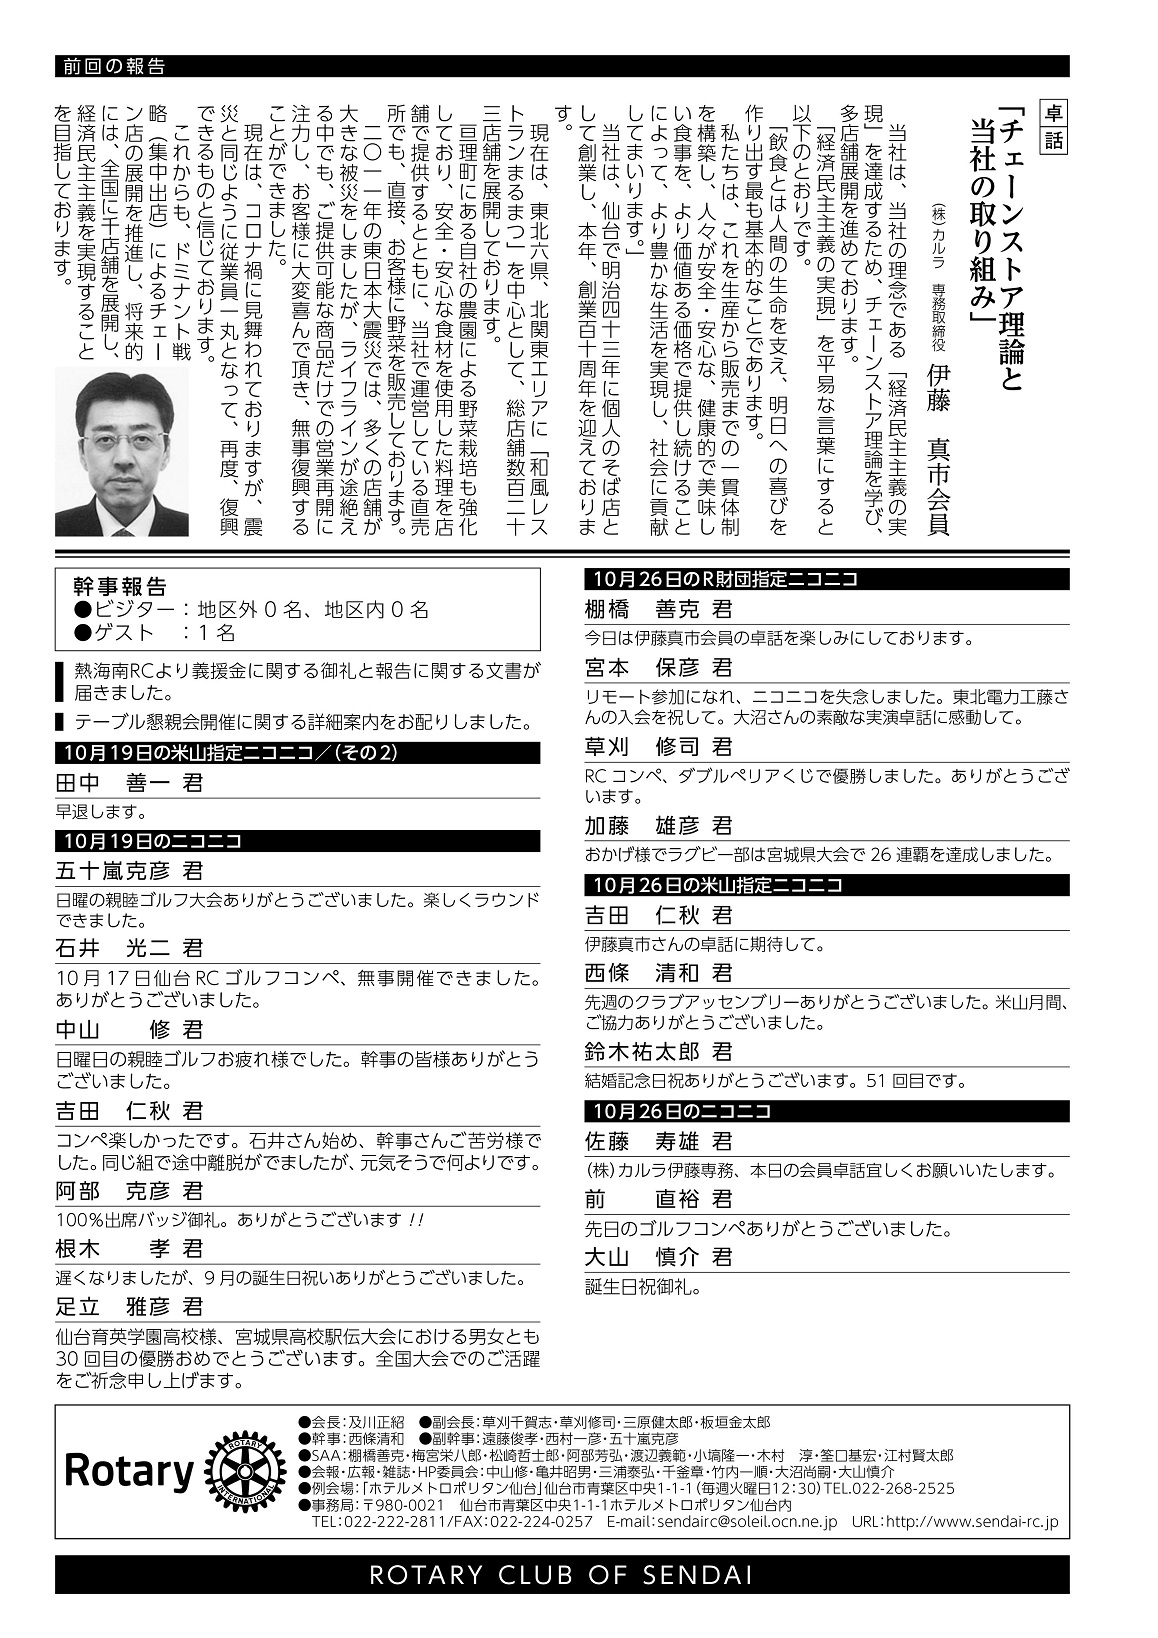 前回の報告
卓話
「チェーンストア理論と
当社の取り組み」
(株)カルラ　専務取締役　伊藤　真市会員
当社は、当社の理念である「経済民主主義の実
現」を達成するため、チェーンストア理論を学び、
多店舗展開を進めております。
「経済民主主義の実現」を平易な言葉にすると
以下のとおりです。
「飲食とは人間の生命を支え、明日への喜びを
作り出す最も基本的なことであります。
私たちは、これを生産から販売までの一貫体制
を構築し、人々が安全・安心な、健康的で美味し
い食事を、より価値ある価格で提供し続けること
によって、より豊かな生活を実現し、社会に貢献
してまいります。」
当社は、仙台で明治四十三年に個人のそば店と
して創業し、本年、創業百十周年を迎えておりま
す。
現在は、東北六県、北関東エリアに「和風レス
トランまるまつ」を中心として、総店舗数百二十
三店舗を展開しております。
亘理町にある自社の農園による野菜栽培も強化
しており、安全・安心な食材を使用した料理を店
舗で提供するとともに、当社で運営している直売
所でも、直接、お客様に野菜を販売しております。
二〇一一年の東日本大震災では、多くの店舗が
大きな被災をしましたが、ライフラインが途絶え
る中でも、ご提供可能な商品だけでの営業再開に
注力し、お客様に大変喜んで頂き、無事復興する
ことができました。
現在は、コロナ禍に見舞われておりますが、震
災と同じように従業員一丸となって、再度、復興
できるものと信じております。
これからも、ドミナント戦
略（集中出店）によるチェー
ン店の展開を推進し、将来的
には、全国に千店舗を展開し、
経済民主主義を実現すること
を目指しております。
幹事報告
●ビジター：地区外０名、地区内０名
●ゲスト　：１名
熱海南RCより義援金に関する御礼と報告に関する文書が
届きました。
テーブル懇親会開催に関する詳細案内をお配りしました。
10月19日の米山指定ニコニコ／（その2）
田中　善一 君
早退します。
10月19日のニコニコ
五十嵐克彦 君
日曜の親睦ゴルフ大会ありがとうございました。楽しくラウンド
できました。
石井　光二 君
10 月 17 日仙台 RC ゴルフコンペ、無事開催できました。
ありがとうございました。
中山　　修 君
日曜日の親睦ゴルフお疲れ様でした。幹事の皆様ありがとう
ございました。
吉田　仁秋 君
コンペ楽しかったです。石井さん始め、幹事さんご苦労様で
した。同じ組で途中離脱がでましたが、元気そうで何よりです。
阿部　克彦 君
100%出席バッジ御礼。ありがとうございます !!
根木　　孝 君
遅くなりましたが、9 月の誕生日祝いありがとうございました。
足立　雅彦 君
仙台育英学園高校様、宮城県高校駅伝大会における男女とも
30 回目の優勝おめでとうございます。全国大会でのご活躍
をご祈念申し上げます。
10月26日のR財団指定ニコニコ
棚橋　善克 君
今日は伊藤真市会員の卓話を楽しみにしております。
宮本　保彦 君
リモート参加になれ、ニコニコを失念しました。東北電力工藤さ
んの入会を祝して。大沼さんの素敵な実演卓話に感動して。
草刈　修司 君
RC コンペ、ダブルペリアくじで優勝しました。ありがとうござ
います。
加藤　雄彦 君
おかげ様でラグビー部は宮城県大会で 26 連覇を達成しました。
10月26日の米山指定ニコニコ
吉田　仁秋 君
伊藤真市さんの卓話に期待して。
西條　清和 君
先週のクラブアッセンブリーありがとうございました。米山月間、
ご協力ありがとうございました。
鈴木祐太郎 君
結婚記念日祝ありがとうございます。51 回目です。
10月26日のニコニコ
佐藤　寿雄 君
(株)カルラ伊藤専務、本日の会員卓話宜しくお願いいたします。
前　　直裕 君
先日のゴルフコンペありがとうございました。
大山　慎介 君
誕生日祝御礼。
Rotary
ROTARY INTERNATIONAL
●会長：及川正紹　●副会長：草刈千賀志・草刈修司・三原健太郎・板垣金太郎
●幹事：西條清和　●副幹事：遠藤俊孝・西村一彦・五十嵐克彦
●SAA：棚橋善克・梅宮栄八郎・松﨑哲士郎・阿部芳弘・渡辺義範・小塙隆一・木村　淳・筌口基宏・江村賢太郎
●会報・広報・雑誌・HP委員会：中山修・亀井昭男・三浦泰弘・千釜章・竹内一順・大沼尚嗣・大山慎介
●例会場：「ホテルメトロポリタン仙台」仙台市青葉区中央1-1-1（毎週火曜日12:30）TEL.022-268-2525
●事務局：〒980-0021　仙台市青葉区中央1-1-1ホテルメトロポリタン仙台内
TEL：022-222-2811/FAX：022-224-0257　E-mail：sendairc@soleil.ocn.ne.jp　URL：http://www.sendai-rc.jp
ROTARY CLUB OF SENDAI